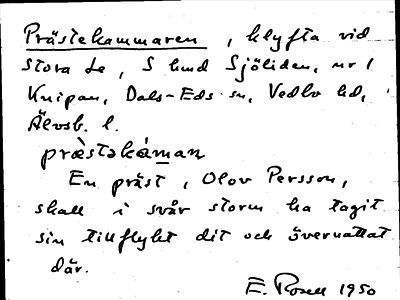 Prästekammaren, klyfta vid
Stora Le, S hmd Sjöliden, nr 1
Knipan, Dals-Eds sn, Vedbo hd,
Älvsb. l.
præ̀stəkáman
En präst, Olov Persson,
skall i svår storm ha tagit
sin tillflykt dit och övernattat
där.
E. Rosell 1950